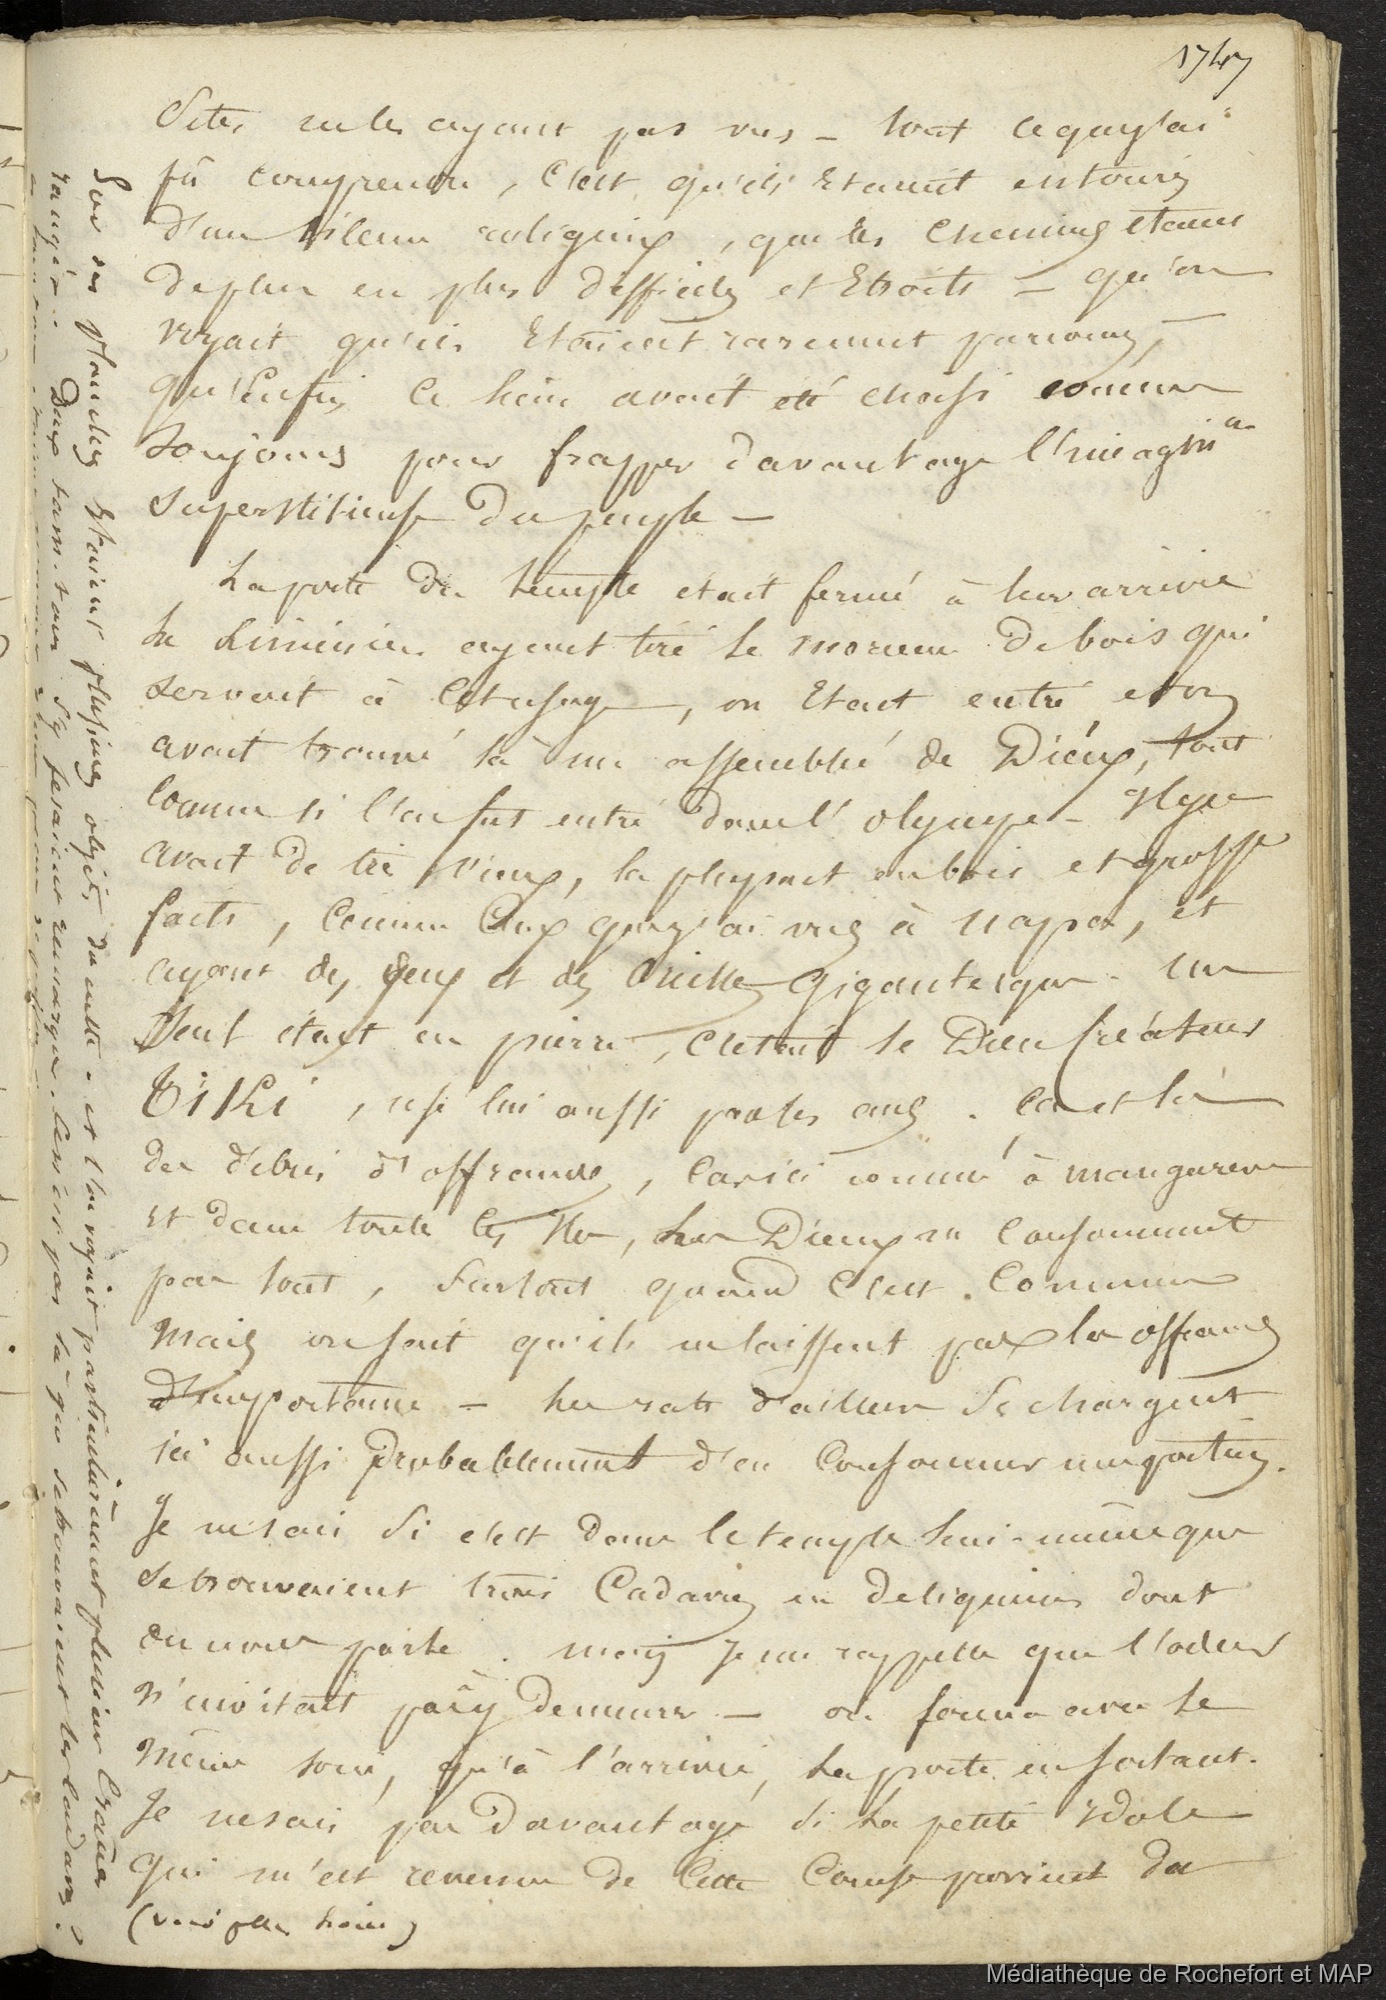 1747
Sites ne les ayant pas vus – tout ce que j'ai
pû comprendre, c'est qu'ils etaient entourés
d'un silence religieux, que les chemins etaient
de plus en plus difficiles et Etroits – qu'on
voyait qu'ils Etaient rarement parcourus,
qu'Enfin ce lieu avait eté choisi comme
toujours pour frapper davantage l'imagin on
superstitieuse du peuple –
La porte du temple etait fermé à leur arrivée
ayant tiré le morceau de bois qui
servait à cet usage, on Etait entré et on
avait trouvé là une assemblée de Dieux, tout
comme si l'on fut entré dans l'olympe – Il y en
avait de très vieux, la plupart en bois et grossst
faits, comme Ceux que j'ai vus à Vapou, et
ayant des yeux et des oreilles gigantesques. Un
seul etait en pierre, c'etait le Dieu Créateur
Tiki, usé lui aussi par les ans. Ca et là
des débris d'offrandes, car ici comme à mangareva
et dans toute les Iles, les Dieux ne consomment
pas tout, surtout quand c'est Commun
Mais on sait qu'ils ne laissent pas les offrandes
d'importance – les rats d'ailleurs se chargent
ici aussi probablement d'en consommer une portion.
Je ne sais si c'est dans le temple lui-même que
se trouvaient trois Cadavres en deliquium dont
on nous parle. mais je me rappelle que l'odeur
n'invitait pas y demeurer – on ferma avec le
même soin, qu'à l'arrivée, la porte en sortant.
Je ne sais pas davantage si la petite idole
qui m'est revenue de Cette Course provient du
(voir plus loin)
Sur des planches Etaient plusieurs objets du culte. et l'on voyait particulièrement plusieurs Crânes
rangés. Deux tam-tam s'y fesaient remarquer. N'est-ce pas là que se trouvaient les Cadavres?